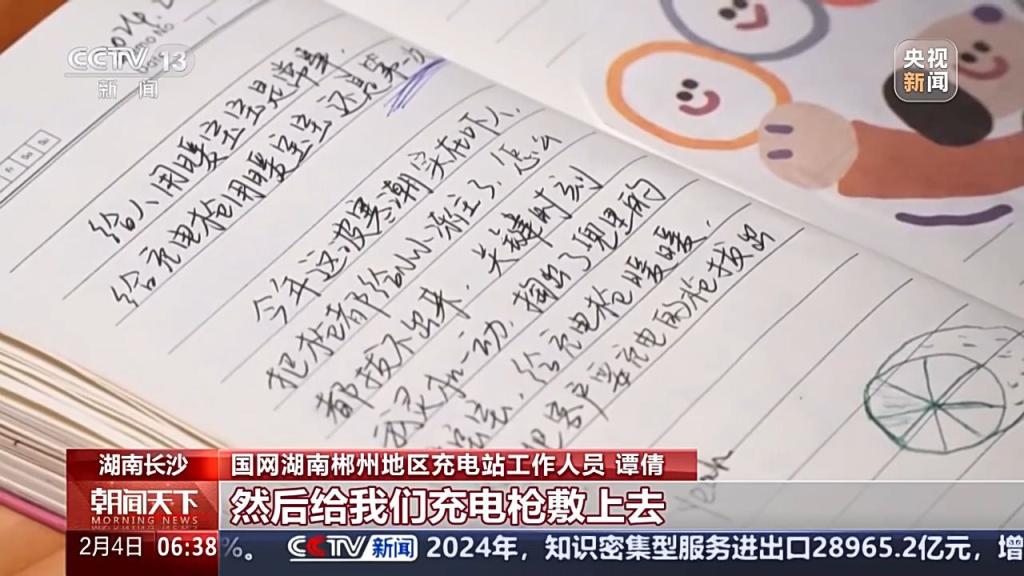 CCTV 13
新闻
央视
新闻
给人用暖宝宝是常事,
给充电枪用暖宝宝还是第一次
今年这波寒潮实在吓人,
把枪都给小冻住了,怎么
都拔不出来,关键时刻
我灵机一动,掏出了兜里的
暖宝宝,给充电枪暖暖,
把客户要充电的枪拔出
yeah
湖南长沙
国网湖南郴州地区充电站工作人员 谭倩
朝闻天下
MORNING NEWS
然后给我们充电枪敷上去
2月4日 06:38
%。 CCTV新闻 2024年,知识密集型服务进出口28965.2亿元,增